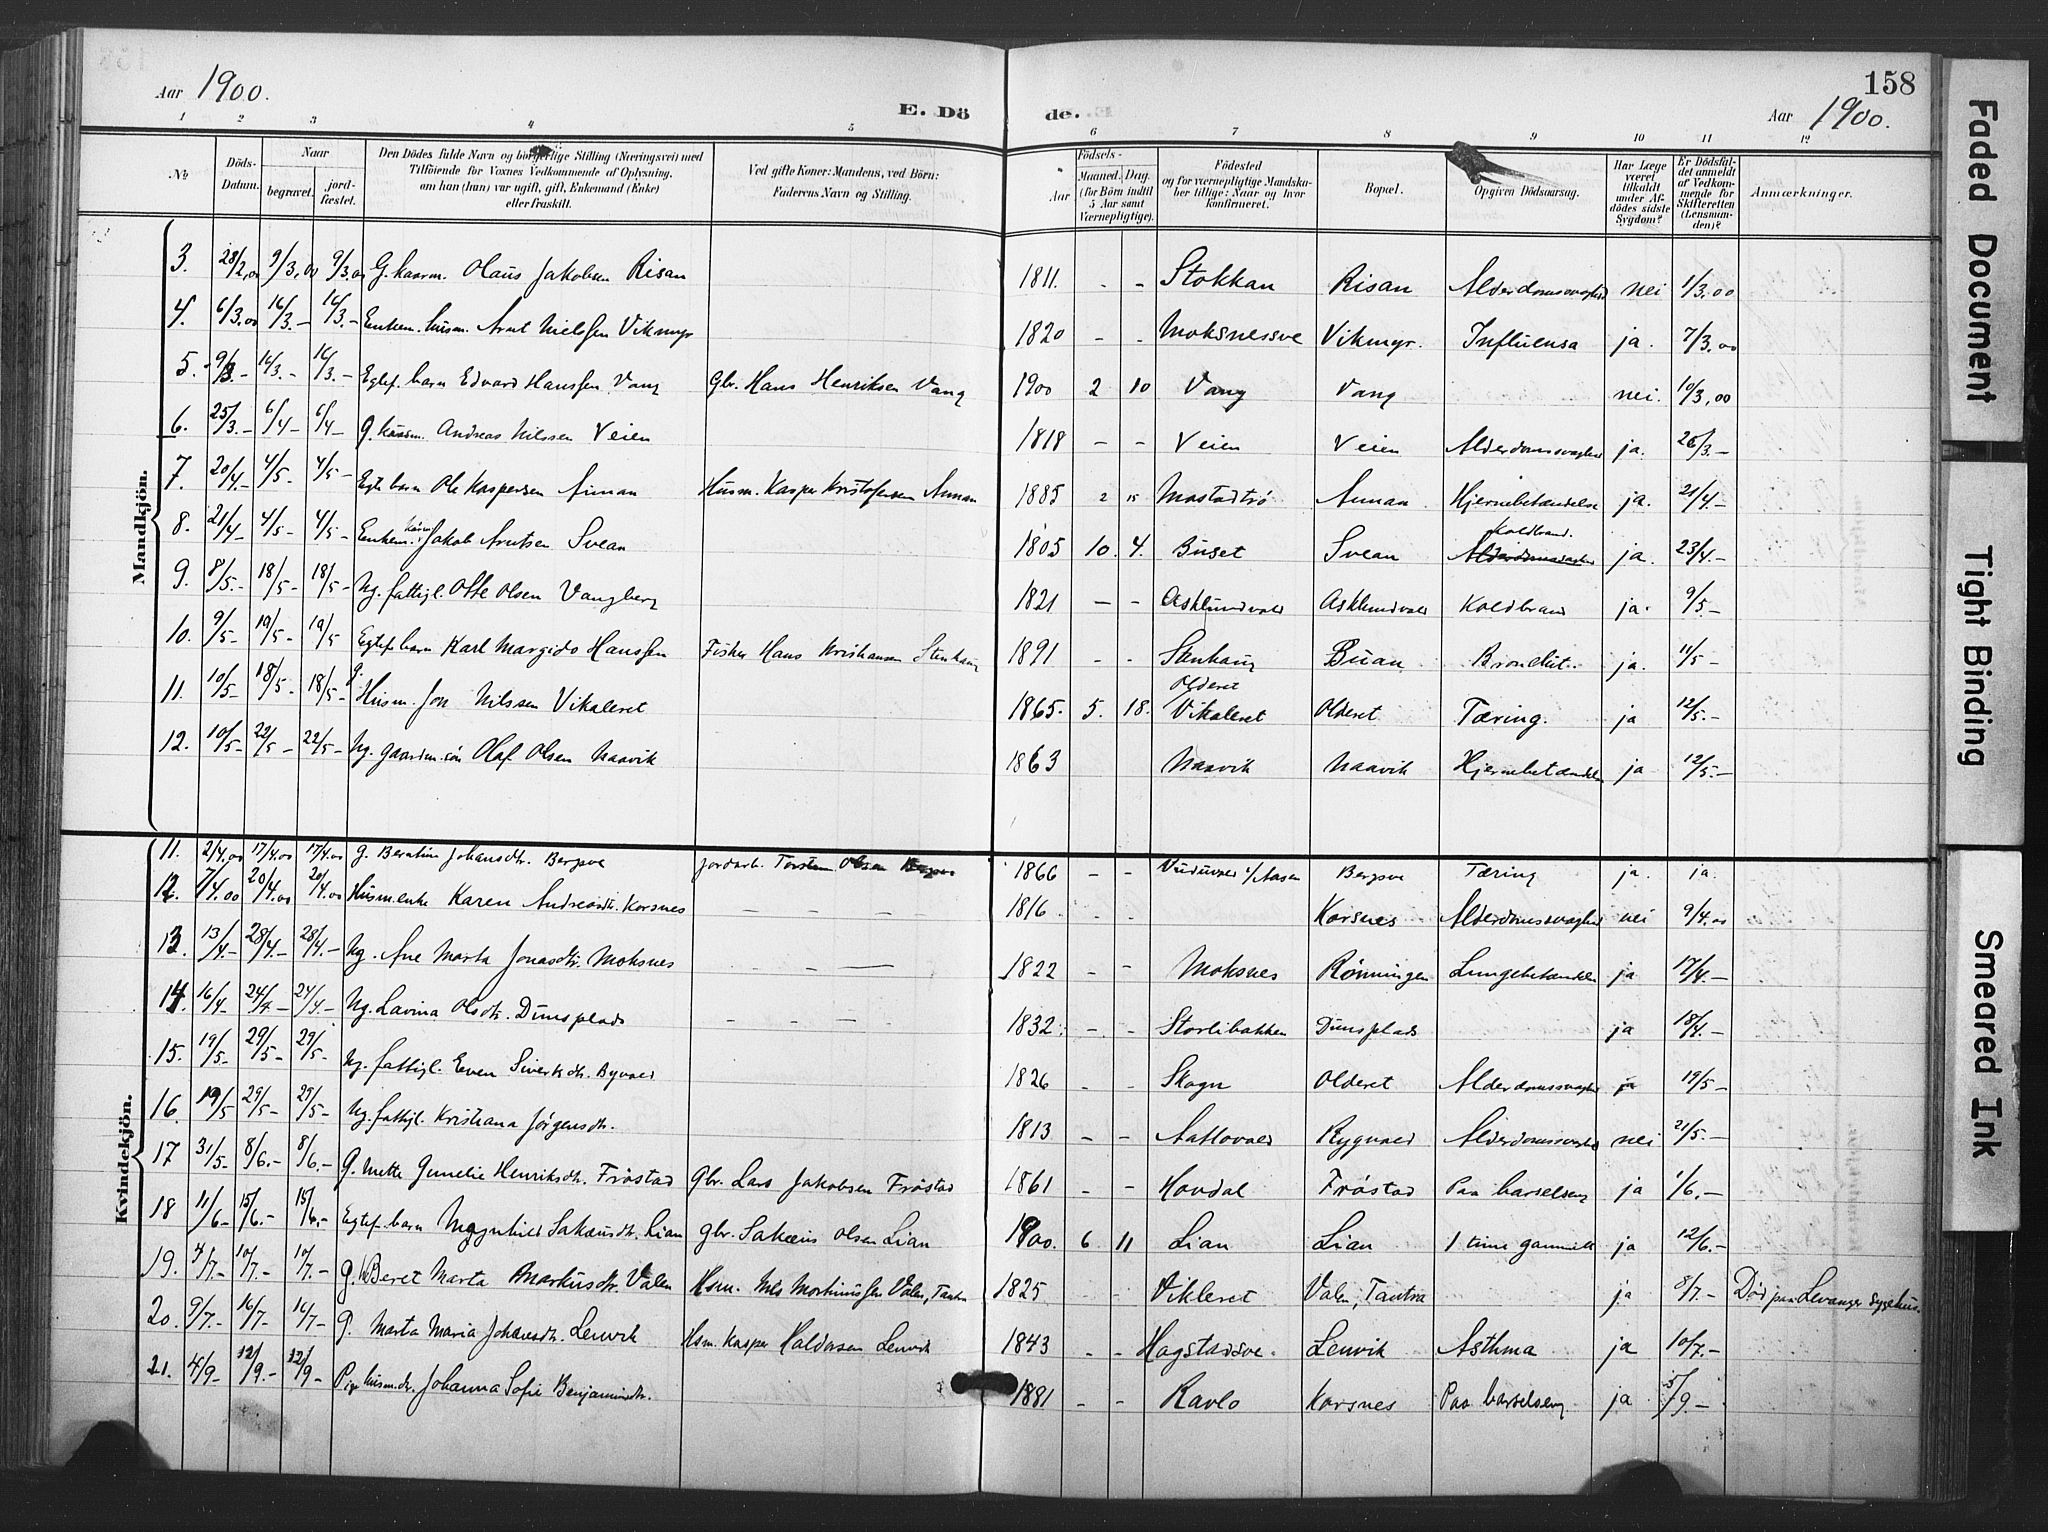 158
Aar 1900.
E. Dö
de.
Aar 1900.
1 2 3 4 5 6 7 8 9 10 11 12
No
Döds-Datum.
Naar
begravet.
jord-fæstet.
Den Dödes fulde Navn og borgerlige Stilling (Næringsvei) med Tilföiende for Voxnes Vedkommende af Oplysning, om han (hun) var ugift, gift, Enkemand (Enke) eller fraskilt.
Ved gifte Koner: Mandens, ved Börn: Faderens Navn og Stilling.
Födsels-
Aar
Maaned. Dag. (for Börn indtil 5 Aar samt Værnepligtige).
Födested og for værnepligtige Mandska-ber tillige: Naar og hvor konfirmeret.
Bopæl.
Opgiven Dödsaarsag.
Har Læge været tilkaldt under Af-dödes sidste Sygdom?
Er Dödsfal-det anmeldt af Vedkom-mende for Skifteretten (Lensman-den)?
Anmærkninger.
Mandkjön.
3. 28/2,00 9/3,00 9/3.00 G. kaarm. Olaus Jakobsen Risan 1811. - - Stokkan Risan Alderdomssvaghed nei 1/3.00
4. 6/3.00 14/3.- 14/3.- Enkem. husm. Arnt Nielssen Vikmyr 1820 - - Moksnessve Vikmyr. Influensa ja. 7/3.00
5. 9/3.- 16/3.- 16/3.- Egtef. barn Edvard Hanssen Vang Gbr. Hans Henriksen Vang 1900 2 10 Vang Vang nei. 10/3,00
6. 25/3.- 6/4- 6/4- G. kaarm. Andreas Nilssen Veien 1818 - - Veien Veien Alderdomssvaghed ja. 26/3.-
7. 20/4.- 4/5.- 4/5- Egte barn Ole Kaspersen Aunan Husm. Kasper Kristofersen Aunan 1885 2 15 Mostadtrø Aunan Hjernebetændelse ja. 21/4.-
8. 21/4- 4/5- 4/5- Enkem. Kaarm. Jakob Arntsen Svean 1805 10. 4. Buset Svean Koldbrand. Alderdomssvaghed ja. 23/4.-
9. 8/5.- 18/5- 18/5- Ug. fattigl. Otte Olsen Vangberg 1821 - - Asklundvald Asklundvald Koldbrand ja. 9/5-
10. 9/5- 19/5- 19/5 Egtef. barn Karl Margido Hanssen Fisker Hans Kristiansen Stenhaug 1891 - - Stenhaug Buan Bronchit. ja. 11/5-
11. 10/5- 18/5- 18/5- g. Husm. Jon Nilssen Vikaleret 1865. 5. 18. Olderet Vikaleret Olderet Tæring. ja 12/5.-
12. 10/5- 22/5- 22/5- Ug. gaardm. søn Olaf Olsen Naavik 1863 Naavik Naavik Hjernebetændelse ja 12/5.-
Kvindekjön.
11. 2/4.00 17/4.00 17/4.00 G. Johansdtr. Bergsve Jordarb. Torsten Olsen 1866 - - i/Aasen Bergsve Tæring ja. ja.
12. 7/4.00 20/4.00 20/4.00 Husm. enke Karen Andreasdtr. Korsnes - - - 1816. - - Korsnes Alderdomssvaghed nei 9/4.00
13. 13/4.- 28/4.- 28/4.- Ug. Ane Marta Jonasdtr. Moksnes - - - 1822 - - Moksnes Rønningen Lungebetændelse ja 17/4.-
14. 16/4. 24/4- 24/4.- Ug. Lavina Olsdtr. Dunsplads - - - - 1832. - - Storlibakken Dunsplads ja 18/4.-
15. 19/5- 29/5- 29/5- Ug. fattigl. Even Siversdtr. Byvald 1826 - - Skogn Olderet Alderdomssvaghed ja 19/5-
16. 19/5 29/5- 29/5- Ug. fattigl. Kristiana Jørgensdtr. 1813 - - Rygvald Alderdomssvaghed nei 21/5.-
17 31/5- 8/6.- 8/6.- G. Mette Gunelie Henriksdtr. Frøstad Gbr. Lars Jakobsen Frøstad 1861 - - Hovdal Frøstad Paa barselseng ja 1/6.-
18 11/6- 15/6.- 15/6.- Egtef. barn Magnhild Sakæusdtr. Lian gbr. Sakæus Olsen Lian 1900. 6 11 Lian Lian 1 time gammelt ja 12/6.-
19. 4/7.- 10/7- 10/7.- G. Beret Marta Markusdtr. Valen Hsm. Nils Mortinussen Valen, Tautra 1825 Vikleret Valen, Tautra ja 8/7.- Død paa Levanger sygehus.
20. 9/7.- 16/7- 16/7- G. Marta Maria Johansdtr. Lenvik Hsm. Kasper Haldosen Lenvik 1843 - - Hogstadsve. Lenvik Asthma ja 10/7.-
21. 4/9- 12/9.- 12/9- Pige husm.dtr. Johanna Sofie Benjaminsdtr. 1881 - - Ravlo Korsnes Paa barselseng ja 5/9-
Faded Document
Tight Binding
Smeared Ink